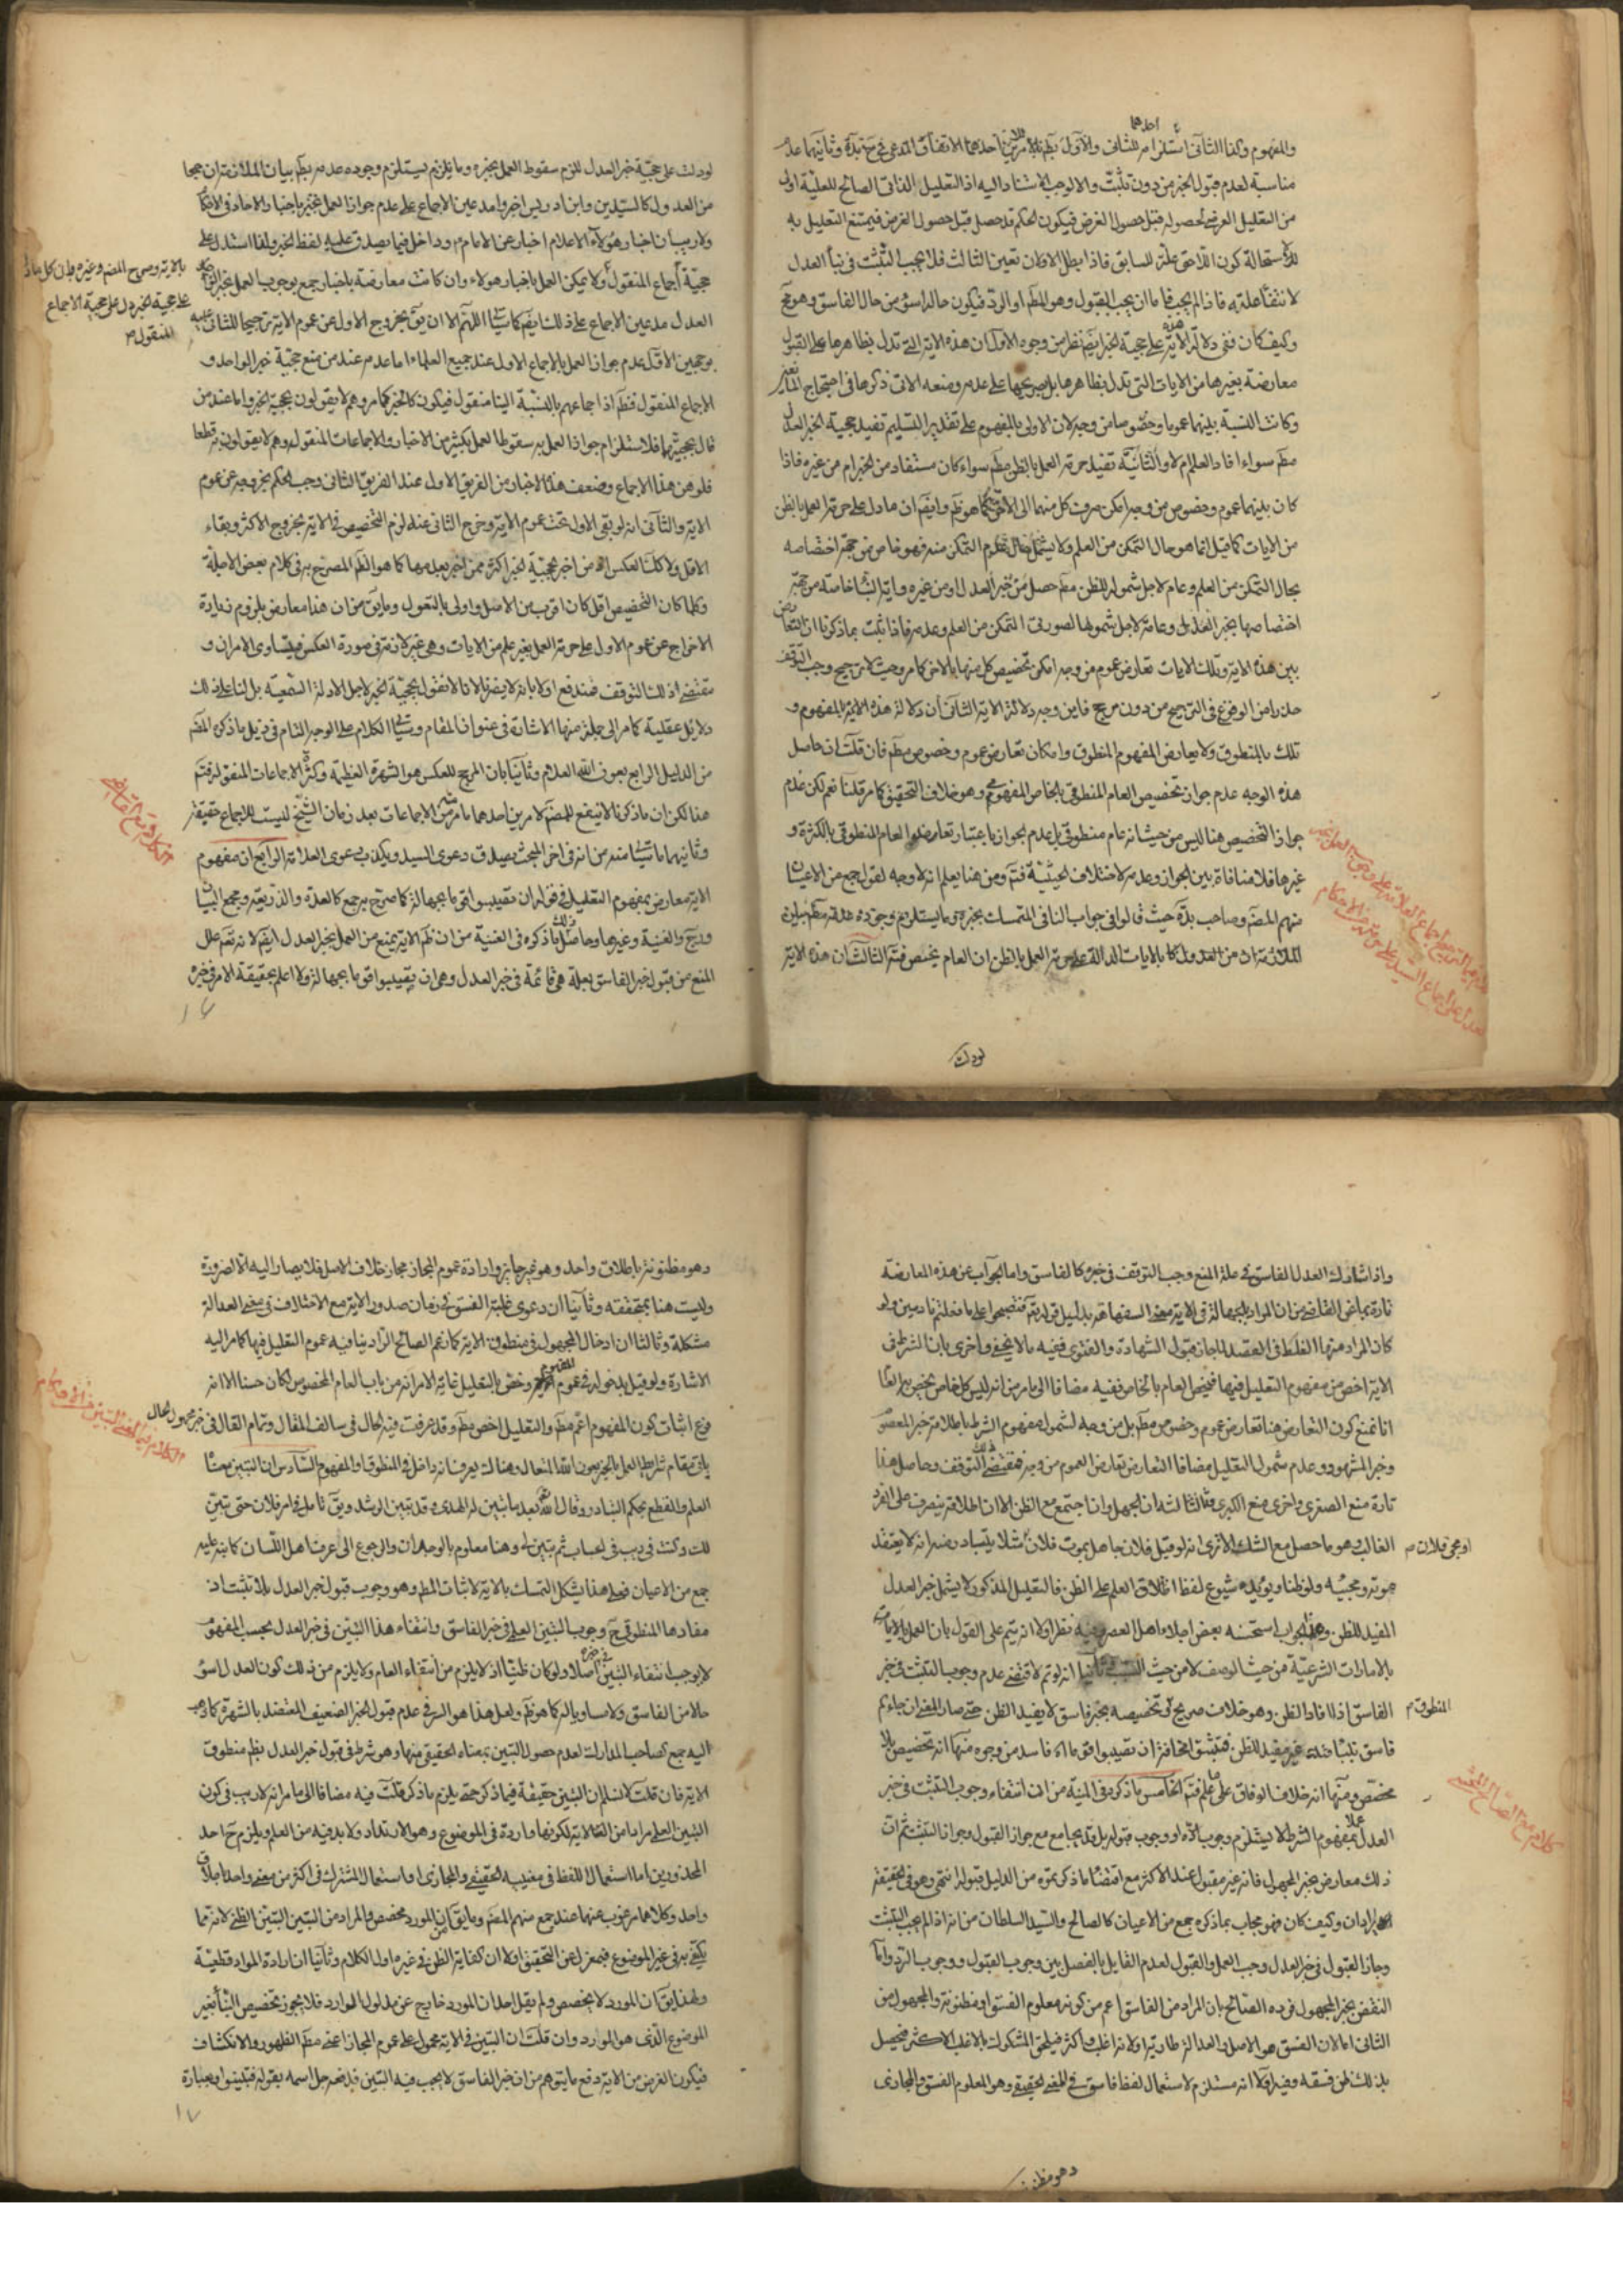 والمفهوم وكذا الثاني استلزام للثاني والاول بطم للامرين احدهما الاتفاق المدعى في حج بدّة وثانيهما عدم
مناسبة لعدم قبول الخبر من دون تثبّت والا لوجب الاستناد اليه اذ التعليل الذاتي الصالح للعلية اولى
من التعليل العرضي لحصوله قبل حصول الغرض فيكون الحكم قد حصل قبل حصول الغرض فيمتنع التعليل به
للاستحالة كون اللاحق علة للسابق فاذا بطل الاولان تعين الثالث فلا يجب التثبت في نبأ العدل
لانتفاء علته فاذا لم يجب فاما ان يجب القبول وهو المطم او الرد فيكون حاله اسوء من حال الفاسق وهو مح
وكيف كان ففي دلالة الاية على حجية الخبر ايضم نظر من وجوه الاول ان هذه الاية التي تدل بظاهرها على القبول
معارضة بغيرها من الايات التي تدل بظاهرها بل بصريحها على عدمه ومنعه الاتي ذكرها في احتجاج المانعين
وكانت النسبة بينهما عموما وخصوصا من وجه لان الاولى بالمفهوم على تقدير التسليم تفيد حجية الخبر العدل
مطم سواء افاد العلم ام لا والثانية تفيد حرمة العمل بالظن مطم سواء كان مستفاد من الخبر ام من غيره فاذا
كان بينهما عموم وخصوص من وجه امكن صرف كل منهما الى الاخر كما هو ظم وايضم ان ما دل على حرمة العمل بالظن
من الايات كما قيل انما هو حال التمكن من العلم ولا يشمل حال عدم التمكن منه فهو خاص من جهة اختصاصه
بحال التمكن من العلم وعام لاجل شموله للظن مطم حصل من خبر العدل او من غيره واية النبأ خاصة من جهة
اختصاصها بخبر العدل وعامة لاجل شمولها لصورتي التمكن من العلم وعدمه فاذا ثبت بما ذكرنا ان التعارض
بين هذه الاية وتلك الايات تعارض عموم من وجه امكن تخصيص كل منهما بالاخر كما مر وحيث لا ترجيح وجب التوقف
حذرا من الوقوع في الترجيح من دون مرجح فاين وجه دلالة الاية الثاني ان دلالة هذه الاية بالمفهوم و
تلك بالمنطوق ولا يعارض المفهوم المنطوق وان كان تعارض عموم وخصوص مطم فان قلت ان حاصل
هذه الوجه عدم جواز تخصيص العام المنطوقي بالخاص المفهومي وهو خلاف التحقيق كما مر قلنا نعم لكن عدم
جواز التخصيص هنا ليس من حيث انه عام منطوقي بل عدم الجواز باعتبار تعاضد العام المنطوقي بالكثرة و
غيرها فلا منافاة بين الجواز وعدمه لاختلاف الحيثية فتم ومن هنا يعلم انه لا وجه لقول جمع من الاعيان
منهم المصم وصاحب بدّة حيث قالوا في جواب النافي المتمسك
بالايات الدالة على حرمة العمل بالظن ان العام يخصص فتم الثالث ان هذه الاية
لو دلت
لو دلت على حجية خبر العدل للزم سقوط العمل بخبره وما يلزم يستلزم وجوده عدمه بطم بيان الملازمة ان جمعا
من العدول كالسيدين وابن ادريس اخبروا مدعين الاجماع على عدم جواز العمل بخبر باخبار الاحاد في الاحكام
ولا ريب ان اخبار هؤلاء الاعلام اخبار عن الامام م وداخل فيما يصدق عليه لفظ الخبر ولذا استدل على
حجية اجماع المنقول ولا يمكن العمل باخبار هولاء وان كانت معارضة باخبار جمع بوجوب العمل بخبر الواحد
العدل مدعين الاجماع على ذلك ايضم كما سياتي اللهم الا ان يق بخروج الاول عن عموم الاية ترجيحا للثاني عليه
بوجهين الاول عدم جواز العمل بالاجماع الاول عند جميع العلماء اما عدمه عند من منع حجية خبر الواحد و
الاجماع المنقول فظم اذ اجماعهم بالنسبة الينا منقول فيكون كالخبر كما مر وهم لا يقولون بحجية الخبر واما عند من
قال بحجيتهما فلاستلزام جواز العمل به سقوط العمل بكثير من الاخبار والاجماعات المنقوله وهم لا يقولون به قطعا
فلوهن هذا الاجماع وضعف هذا الاخبار من الفريق الاول عند الفريق الثاني وجب الحكم بخروجه عن عموم
الاية والثاني انه لو بقي الاول تحت عموم الاية وخرج الثاني عنه لزم التخصيص في الاية بخروج الاكثر وبقاء
الاقل ولا كذلك العكس اذ من اخبر بحجية الخبر اكثر ممن اخبر بعدمها كما هو الظم المصرح به في كلام بعض الاجلة
وكلما كان التخصيص اقل كان اقرب من الاصل واولى بالقبول وما يق من ان هذا معارض بلزوم زيادة
الاخراج عن عموم الاول على حرمة العمل بغير علم من الايات وهي غير لازمة في صورة العكس فيتساوى الامران و
مقتضى اذ ذلك التوقف فمندفع اولا بانه لا يضرنا لانا لا نقول بحجية الخبر لاجل الادلة السمعية بل لنا على ذلك
دلايل عقلية كما مر الى جملة منها الاشارة في عنوان المقام وسياتي الكلام على الوجه التام في ذيل ما ذكره المصم
من الدليل الرابع بعون الله العلام وثانيا بان المرجح للعكس هو الشهرة العظيمة وكثرة الاجماعات المنقولة فتم
هذا لكن ان ما ذكرنا لا ينفع للمصم لامرين احدهما ما مر من الاجماعات بعد زمان الشيخ ليست للاجماع حقيقة
وثانيهما ما سياتي منه من انه في اخر المبحث يصدق دعوى السيد ويكذب دعوى العلامة الرابع ان مفهوم
الاية معارض بمفهوم التعليل في قوله ان تصيبوا قوما بجهالة كما صرح به جمع كالعدة والذريعة ومجمع البيان
والغنية وغيرها وحاصل ذلك ما ذكره في الغنية من ان ظم الاية يمنع من العمل بخبر العدل ايضم لانه تعم علل
المنع من قبول خبر الفاسق بعلة هي قائمة في خبر العدل وهي ان تصيبوا قوما بجهالة ولا اعلم بحقيقة الامر في خبره
١٦
واذا شارك العدل الفاسق في علة المنع وجب التوقف في خبره كالفاسق واما الجواب عن هذه المعارضة
تارة بما عن القاضي من ان المراد بالجهالة في الاية معنى السفاهة بدليل قوله تعم فتصبحوا على ما فعلتم نادمين ولو
كان المراد منها الغلط في العقيدة لما جاز قبول الشهادة والفتوى ففيه ما لا يخفى واخرى بان الشرط في
الاية اخص من مفهوم التعليل فيها فيخص العام بالخاص ففيه مضافا الى ما مر من انه ليس كل خاص يخص به العام
انا نمنع كون التعارض هنا تعارض عموم وخصوص مطم بل من وجه لشمول مفهوم الشرط باطلاقه خبر المعصوم
وخبر المشهور وعدم شمول التعليل مضافا التعارض تعارض العموم من وجه فمقتضى ذلك التوقف وحاصل هذا
تارة منع الصغرى واخرى منع الكبرى وثالثا لنا ان الجهل وان اجتمع مع الظن الا ان اطلاقه ينصرف على الفرد
الغالب وهو ما حصل مع الشك الا ترى انه لو قيل فلان جاهل بموت فلان مثلا يتبادر منه انه لا يعتقد
موته ومجيئه ولو ظنا ويؤيده شيوع لفظ اطلاق العلم على الظن فالتعليل المذكور لا يشمل خبر العدل
المفيد للظن وهذا الجواب استحسنه بعض اجلاء اهل العصر وفيه نظر اولا انه يتم على القول بان العمل
بالامارات الشرعية من حيث الوصف لا من حيث السبب وثانيا انه لو تم لاقتضى عدم وجوب التثبت في خبر
الفاسق اذا افاد الظن وهو خلاف صريح المنطوق في تخصيصه بخبر فاسق لا يفيد الظن حتى صار المعنى ان جاءكم
فاسق بنبأ غير مفيد للظن فتبينوا مخافة ان تصيبوا قوما اه فاسد من وجوه منها انه تخصيص بلا
مخصص ومنها انه خلاف الوفاق على ما علم فتم الخامس ما ذكره في المنية من ان انتفاء وجوب التثبت في خبر
العدل عملا بمفهوم الشرط لا يستلزم وجوب الاه او وجوب قبوله بل قد يجامع مع جواز القبول وجواز التثبت ثم ان
ذلك معارض بخبر المجهول فانه غير مقبول عند الاكثر مع اقتضاء ما ذكرتموه من الدليل قبوله انتهى وهو في الحقيقة
ايرادان وكيف كان فهو مجاب بما ذكره جمع من الاعيان كالصالح والسيد السلطان من انه اذا لم يجب التثبت
وجاز القبول في خبر العدل وجب العمل والقبول لعدم القايل بالفصل بين وجوب القبول ووجوب الرد واما
النقض بخبر المجهول فرده الصالح بان المراد من الفاسق اعم من كونه معلوم الفسق او مظنونه والمجهول من
الثاني اما لان الفسق هو الاصل والعدالة طارية او لانه اغلب واكثر فيلحق المشكوك بالاغلب الاكثر فيحصل
بذلك ظن فسقه وفيه اولا انه مستلزم لاستعمال لفظ فاسق في المعنى الحقيقي وهو المعلوم الفسق والمجازى
او مجئ فلان م
المنطوق م
وهو مظنون
وهو مظنونه باطلاق واحد وهو غير جايز وارادة عموم المجاز مجاز خلاف الاصل فلا يصار اليه الا لضرورة
وليست هنا بمتحققه وثانيا ان دعوى غلبة الفسق في زمان صدور الاية مع الاختلاف في معنى العدالة
مشكلة وثالثا ان ادخال المجهول في منطوق الاية كما زعم الصالح الزاد ينافيه عموم التعليل فيها كما مر اليه
الاشارة ولو قيل بدخوله في عموم المفهوم وخص بالتعليل غاية الامر انه من باب العام المخصوص لكان حسنا الا انه
فرع اثبات كون المفهوم اعم مطم والتعليل اخص مطم وقد عرفت فيه الحال في سالف المقال وتمام القال في خبر مجهول الحال
ياتي بمقام شرايط العمل بالخبر بعون الله المتعال وهناك يعرف انه داخل في المنطوق او المفهوم السادس ان التبين معناه
العلم والقطع بحكم التبادر وقال الله تعم بعد ما تبين له الهدى وقد تبين الرشد ويق تامل في امر فلان حتى تبين
لك وكنت في ريب في حساب ثم تبين لي وهنا معلوم بالوجدان والرجوع الى عرف اهل اللسان كما نبه عليه
جمع من الاعيان فعلى هذا يشكل التمسك بالاية لاثبات المطم وهو وجوب قبول خبر العدل بلا تثبت اذ
مفادها المنطوقي ح وجوب التبين العلمي في خبر الفاسق وانتفاء هذا التبين في خبر العدل بحسب المفهوم
لا يوجب انتفاء التبين في خبره اصلا ولو كان ظنيا اذ لا يلزم من انتفاء العام ولا يلزم من ذلك كون العدل اسوء
حالا من الفاسق ولا مساويا له كما هو ظم ولعل هذا هو السر في عدم قبول الخبر الضعيف المعتضد بالشهرة كما ذهب
اليه جمع كصاحب المدارك لعدم حصول التبين بمعناه الحقيقي منها وهو شرط في قبول خبر العدل بظم منطوق
الاية فان قلت لا نسلم ان التبين حقيقة فيما ذكر حتى يلزم ما ذكر قلت فيه مضافا الى ما مر انه لا ريب في كون
التبين العلمي مرادا من الاية لكونها واردة في الموضوع وهو الارتداد ولا بد فيه من العلم ويلزم ح احد
المحذورين اما استعمال اللفظ في معنييه الحقيقي والمجازى او استعمال المشترك في اكثر من معنى واحد باطلاق
واحد وكلاهما مرغوب عنهما عند جمع منهم المصم وما يق ان المورد مخصص والمراد من التبين التبين الظني لانه مما
يكتفى به في غير الموضوع فبمعزل عن التحقيق اولا ان كفاية الظن في غيره اول الكلام وثانيا ان ارادة الموارد قطعية
ولهذا يق ان المورد لا يخصص ولم يقل احد ان المورد خارج عن مدلول الموارد فلا يجوز تخصيص النبأ بغير
الموضوع الذى هو الموارد وان قلت ان التبين في الاية محمول على عموم المجاز اعنى مطم الظهور والانكشاف
فيكون الغرض من الاية دفع ما يتوهم من ان خبر الفاسق لا يجب فيه التبين فدفعه جل اسمه بقوله فتبينوا وبعبارة
١٧